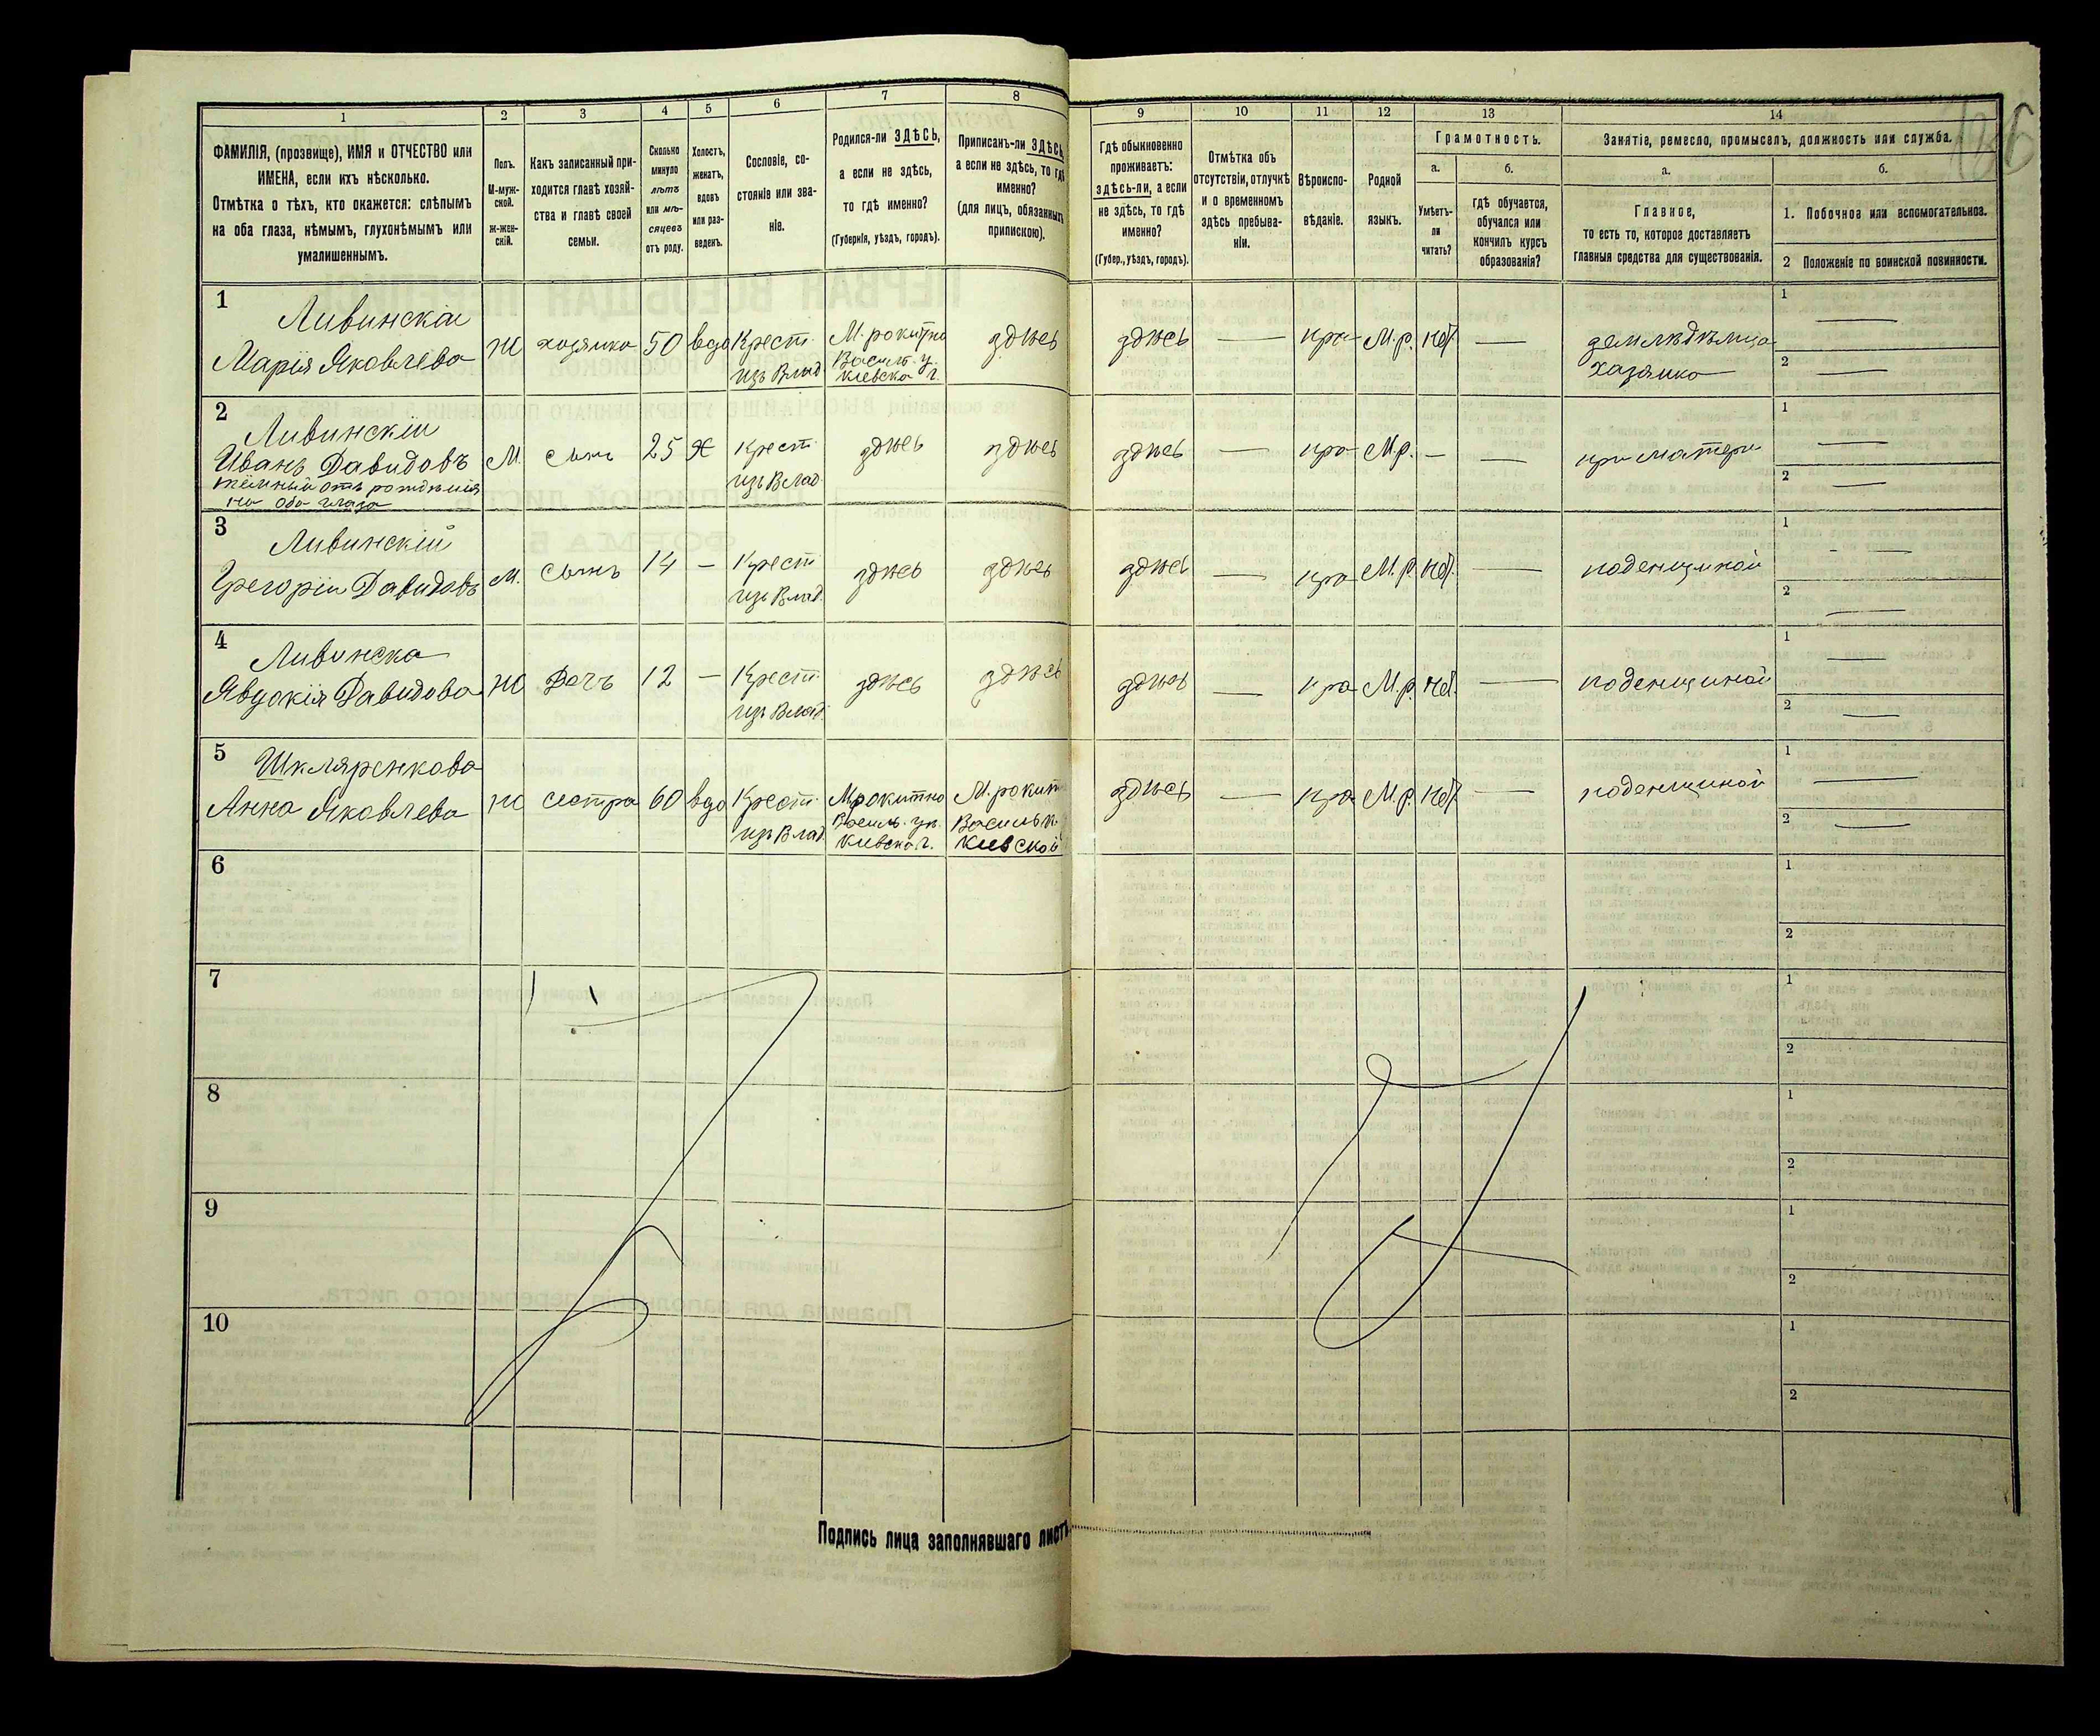 1 2 3 4 5 6 7 8 9 10 11 12 13 14
ФАМИЛІЯ, (прозвище), ИМЯ и ОТЧЕСТВО или
ИМЕНА, если ихъ нѣсколько.
Отмѣтка о тѣхъ, кто окажется: слѣпымъ
на оба глаза, нѣмымъ, глухонѣмымъ или
умалишеннымъ.
Полъ.
М-муж-
ской.
ж-жен-
скій.
Какъ записанный при-
ходится главѣ хозяй-
ства и главѣ своей
семьи.
Сколько
минуло
лѣтъ
или мѣ-
сяцевъ
отъ роду.
Холостъ,
женатъ,
вдовъ
или раз-
веденъ.
Сословіе, со-
стояніе или зва-
ніе.
Родился-ли ЗДѢСЬ,
а если не здѣсь,
то гдѣ именно?
(Губернія, уѣздъ, городъ).
Приписанъ-ли ЗДѢСЬ,
а если не здѣсь, то гдѣ
именно?
(для лицъ, обязанныхъ
припискою).
Гдѣ обыкновенно
проживаетъ:
здѣсь-ли, а если
не здѣсь, то гдѣ
именно?
(Губер., уѣздъ, городъ).
Отмѣтка объ
отсутствіи, отлучкѣ
и о временномъ
здѣсь пребыва-
ніи.
Вѣроиспо-
вѣданіе.
Родной
языкъ.
Грамотность.
а.
Умѣетъ-
ли
читать?
б.
гдѣ обучается,
обучался или
кончилъ курсъ
образованія?
Занятіе, ремесло, промыселъ, должность или служба.
а.
Главное,
то есть то, которое доставляетъ
главныя средства для существованія.
б.
1. Побочное или вспомогательное.
2 Положеніе по воинской повинности.
126
1 Ливинскаи
Марія Яковлева
Ж хозяйка 50 вдо Крест.
изъ Влад
М. рокитна
Васил. у.
Кіевска г.
здѣсь здѣсь — пра М.р. нѣт —
земледѣлица
хазяйка
1 —
2 —
2 Ливинскіи
Иванъ Давидовъ
тёмный отъ рожденія
на оба глаза
М. сынъ 25 Х Крест.
изъ Влад.
здѣсь здѣсь здѣсь — пра М.р. — —
при матери
1 —
2 —
3 Ливинскій
Григоріи Давидовъ
М. сынъ 14 — Крест
изъ Влад.
здѣсь здѣсь здѣсь — пра М.р. нѣт —
поденщиной
1 —
2 —
4 Ливинска
Явдокія Давидова
Ж Дочъ 12 — Крест.
изъ Влад.
здѣсь здѣсь здѣсь — пра М.р. нѣт. —
поденщиной
1 —
2 —
5 Шкляренкова
Анна Яковлева
Ж сестра 60 вдо Крест.
изъ Влад.
М.рокитно
Василь. у.
Кіевска г.
М. рокит
Васильк.
Кіевской
здѣсь — пра М.р. нѣт. —
поденщиной
1 —
2 —
6
1
2
7
1
2
8
1
2
9
1
2
10
1
2
Подпись лица заполнявшаго листъ